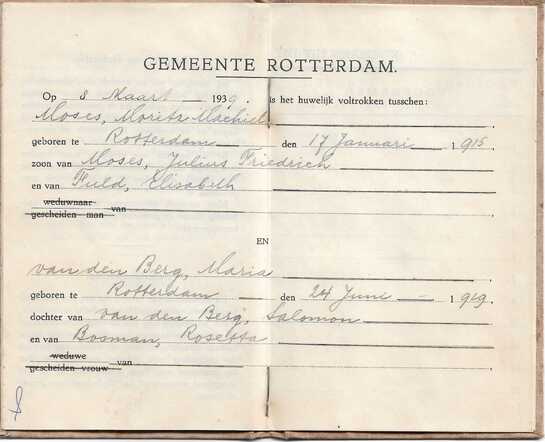 GEMEENTE ROTTERDAM.
Op 8 Maart 1939. is het huwelijk voltrokken tusschen:
Moses, Morits Machiel
geboren te Rotterdam den 17 Januari 1915
zoon van Moses, Julius Friedrich
en van Fuld, Elisabeth
weduwnaar
gescheiden man van
EN
van den Berg, Maria
geboren te Rotterdam den 24 Juni 1919.
dochter van van den Berg, Salomon
en van Bosman, Rosetta
weduwe
gescheiden vrouw van